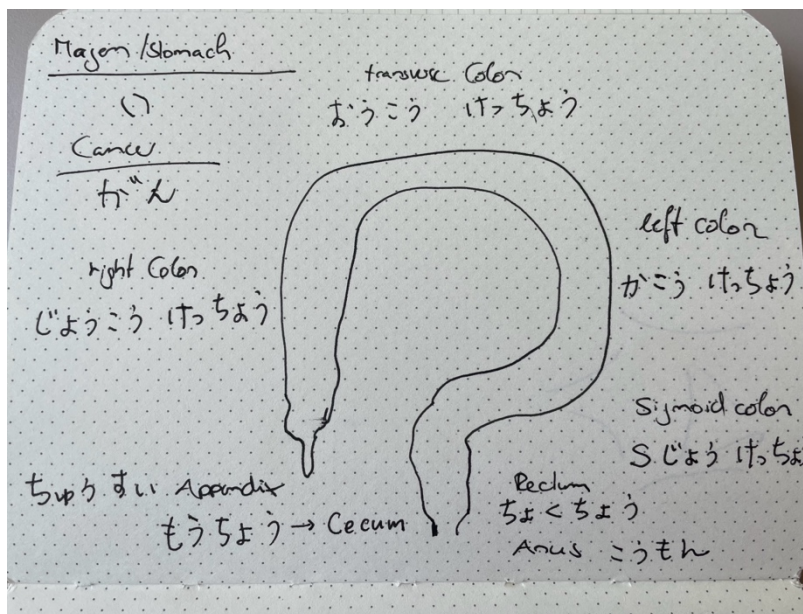 Magen/Stomach
い
Cancer
がん
transverse Colon
おうこう けっちょう
left colon
かこう けっちょう
right Colon
じょうこう けっちょう
Sigmoid colon
S じょう けっちょ
ちゅうすい Appendix
もうちょう → Cecum
Rectum
ちょくちょう
Anus こうもん